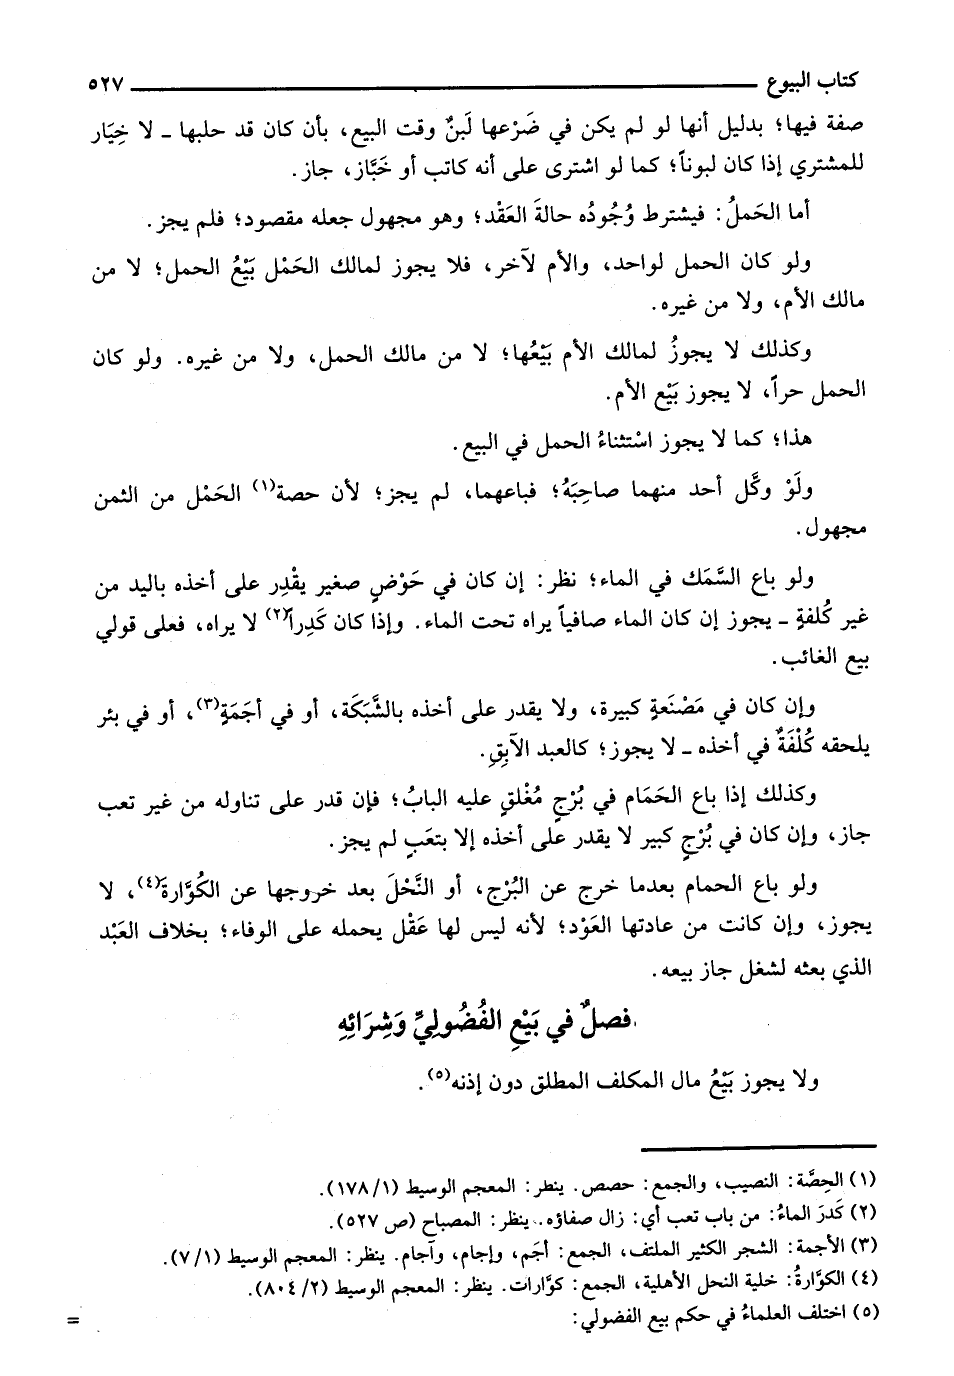 كتاب البيوع ٥٢٧
صفة فيها؛ بدليل أنها لو لم يكن في ضَرْعها لَبنٌ وقت البيع، بأن كان قد حلبها ـ لا خِيَار
للمشتري إذا كان لبوناً؛ كما لو اشترى على أنه كاتب أو خَبَّاز، جاز.
أما الحَملُ: فيشترط وُجُودُه حالةَ العَقْد؛ وهو مجهول جعله مقصود؛ فلم يجز.
ولو كان الحمل لواحد، والأم لآخر، فلا يجوز لمالك الحَمْل بَيْعُ الحمل؛ لا من
مالك الأم، ولا من غيره.
وكذلك لا يجوزُ لمالك الأم بَيْعُها؛ لا من مالك الحمل، ولا من غيره. ولو كان
الحمل حراً، لا يجوز بَيْع الأم.
هذا؛ كما لا يجوز اسْتثناءُ الحمل في البيع.
ولَوْ وكَّل أحد منهما صاحِبَهُ؛ فباعهما، لم يجز؛ لأن حصة(١) الحَمْل من الثمن
مجهول.
ولو باع السَّمَك في الماء؛ نظر: إن كان في حَوْضٍ صغير يقْدِر على أخذه باليد من
غير كُلفةٍ ـ يجوز إن كان الماء صافياً يراه تحت الماء. وإذا كان كَدِراً(٢) لا يراه، فعلى قولي
بيع الغائب.
وإن كان في مَصْنَعةٍ كبيرة، ولا يقدر على أخذه بالشَّبَكَة، أو في أجَمَةٍ(٣)، أو في بئر
يلحقه كُلْفَةٌ في أخذه ـ لا يجوز؛ كالعبد الآبِقِ.
وكذلك إذا باع الحَمَام في بُرْجٍ مُغْلقٍ عليه البابُ؛ فإن قدر على تناوله من غير تعب
جاز، وإن كان في بُرْجٍ كبير لا يقدر على أخذه إلا بتعَبٍ لم يجز.
ولو باع الحمام بعدما خرج عن البُرْج، أو النَّحْلَ بعد خروجها عن الكُوَّارة(٤)، لا
يجوز، وإن كانت من عادتها العَوْد؛ لأنه ليس لها عَقْل يحمله على الوفاء؛ بخلاف العَبْد
الذي بعثه لشغل جاز بيعه.
فصلٌ في بَيْعِ الفُضُولِيِّ وَشِرَائِهِ
ولا يجوز بَيْعُ مال المكلف المطلق دون إذنه(٥).
(١) الحِصَّة: النصيب، والجمع: حصص. ينظر: المعجم الوسيط (١٧٨/١).
(٢) كَدرَ الماءُ: من باب تعب أي: زال صفاؤه. ينظر: المصباح (ص ٥٢٧).
(٣) الأجمة: الشجر الكثير الملتف، الجمع: أجَم، وإجام، وآجام. ينظر: المعجم الوسيط (٧/١).
(٤) الكوَّارةُ: خلية النحل الأهلية، الجمع: كوَّارات. ينظر: المعجم الوسيط (٨٠٤/٢).
(٥) اختلف العلماءُ في حكم بيع الفضولي:
=